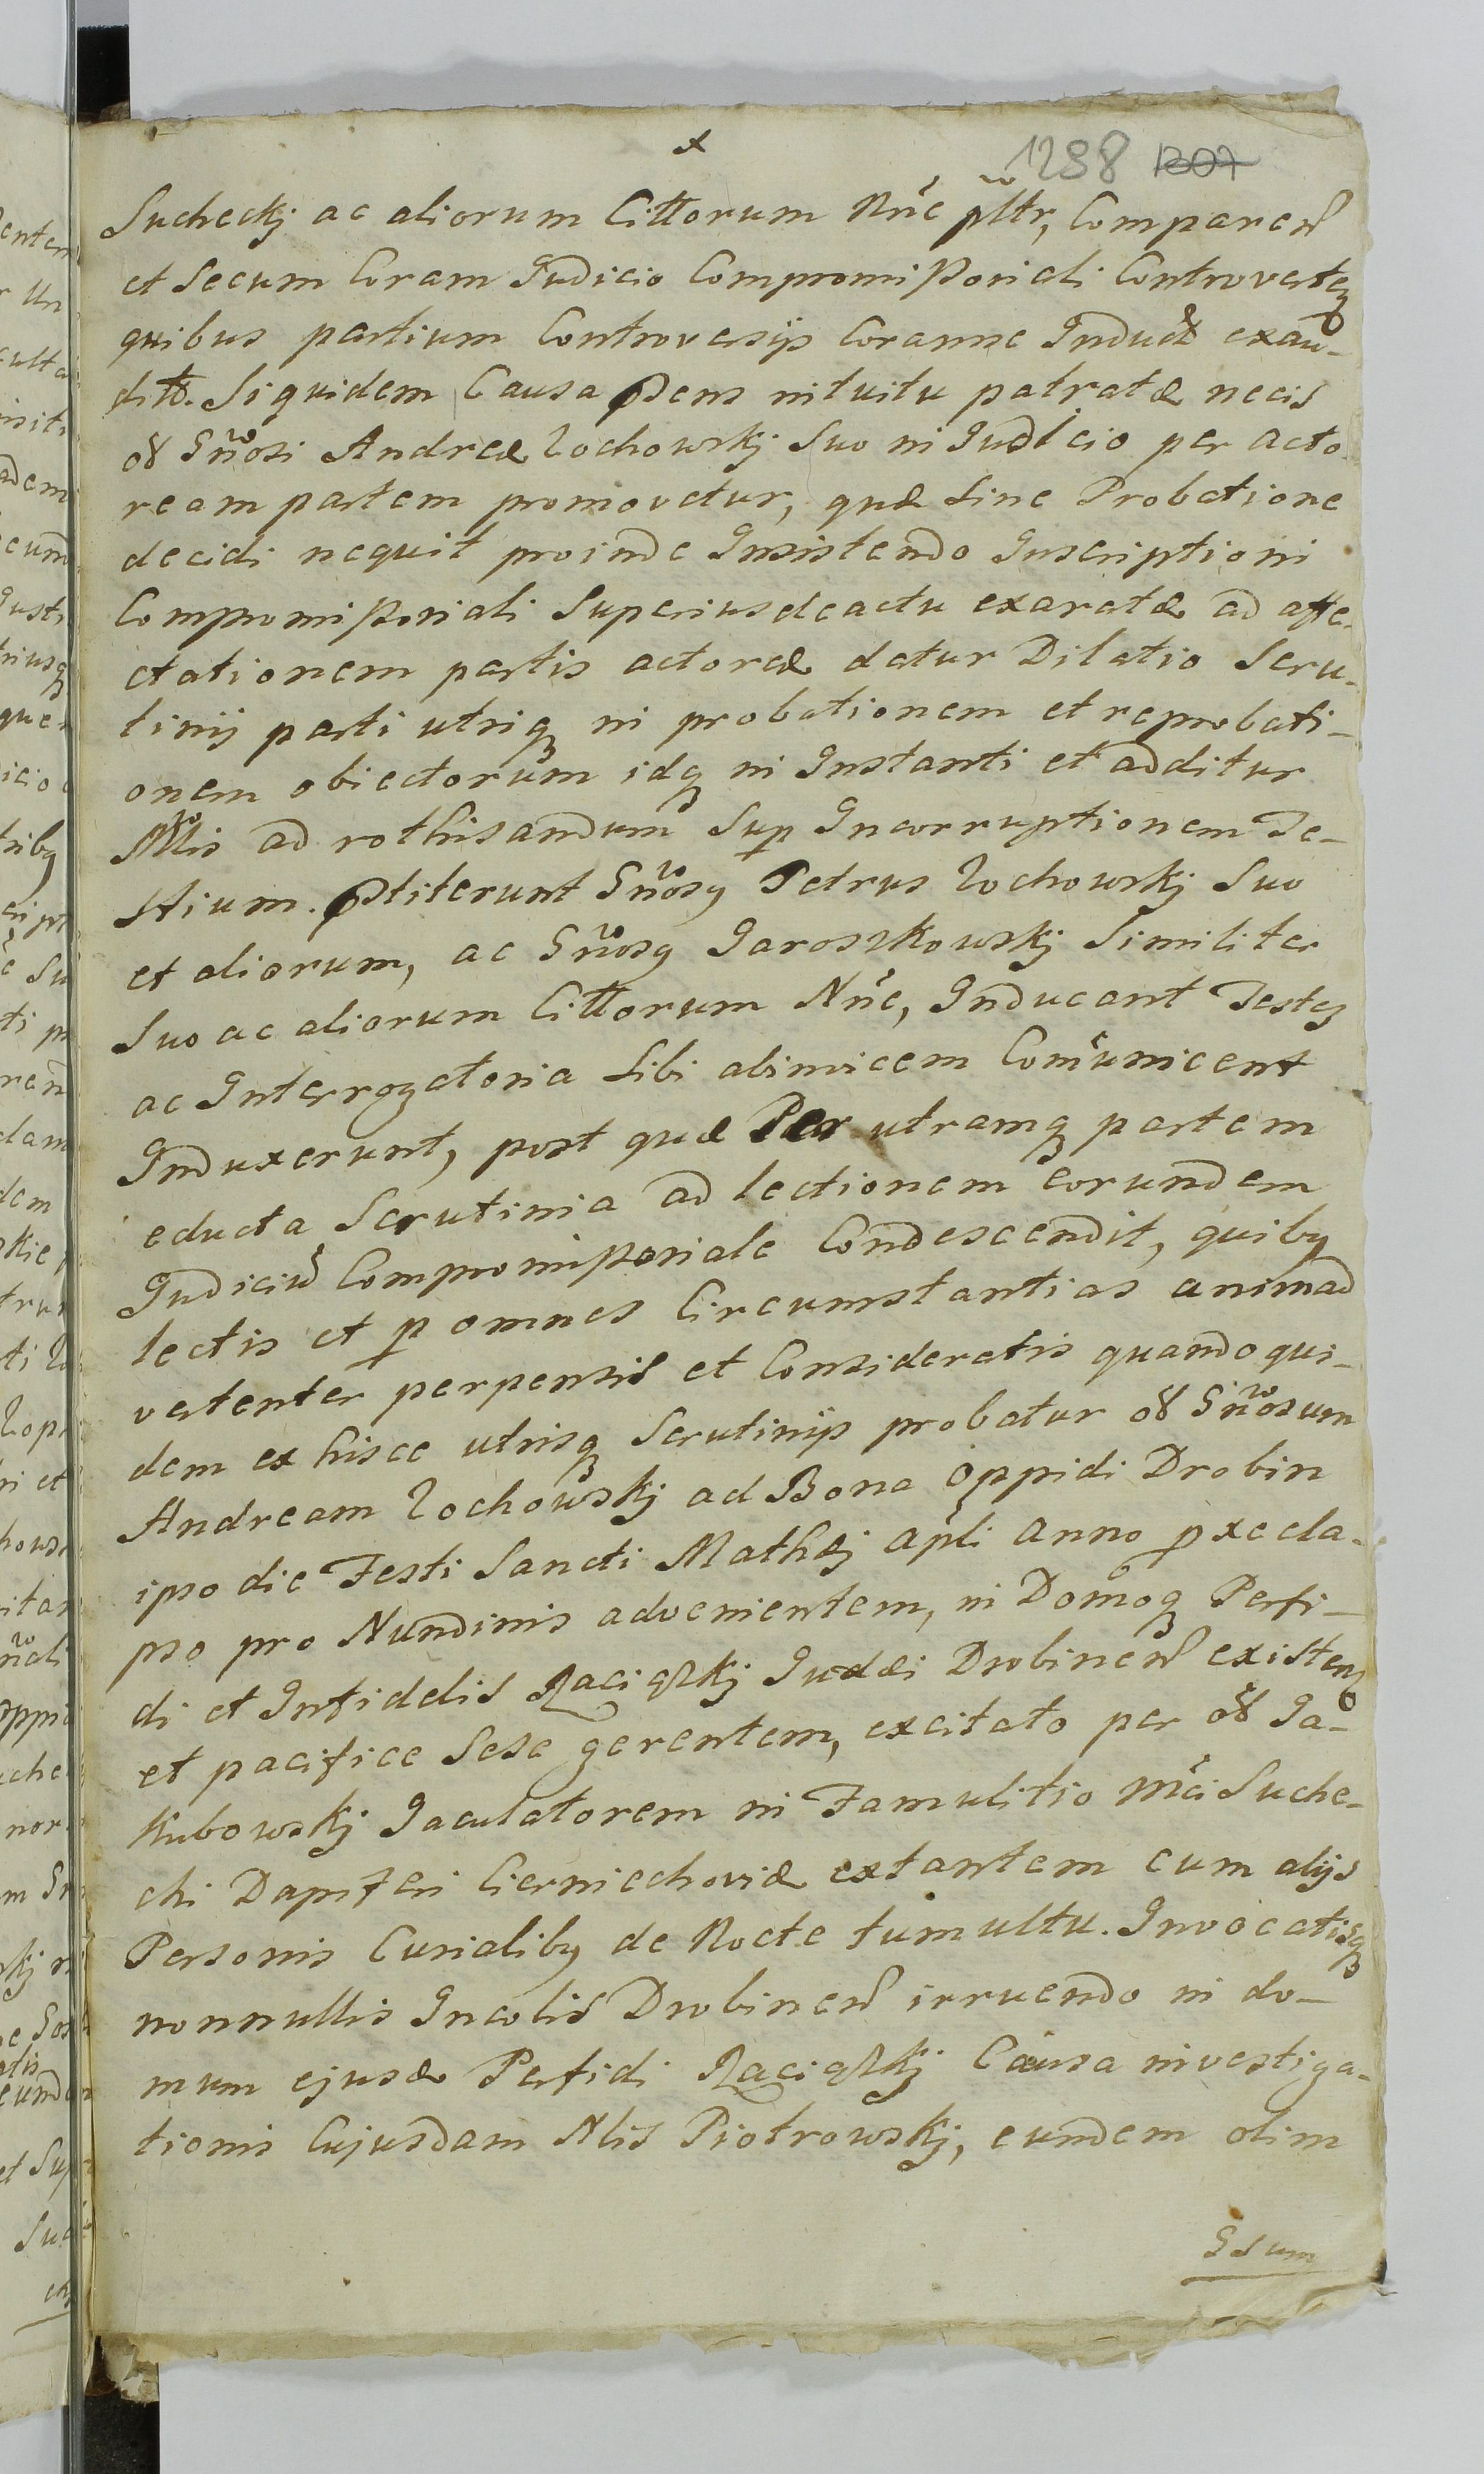 1288 1307
Sucheckj ac aliorum Cittorum Nñe pltr, Comparen̄
et Secum Coram Judicio Compromissoriali Controverten̄
quibus partium Controversijs Coramse Induct̄ exau-
dit̄. Siquidem Causa pñsens intuitu patratæ necis
olī Gñosi Andreæ Zochowskj Suo in Judicio per acto-
ream partem promovetur, quæ Sine Probatione
decidi nequit proinde Insistendo Inscriptioni
Compromissoriali Superius de actu exaratæ ad affe-
ctationem partis actoreæ datur Dilatio Scru-
tinij parti utriq in probationem et reprobati-
onem obiectorum idq in Instanti et additur
Nblis ad rothisandum Sup Incorruptionem Te-
stium. pstiterunt Gñosg Petrus Zochowskj Suo
et aliorum, ac Gñosg Jaroszkowskj Similiter
Suo ac aliorum Cittorum Nñe, Inducant Testes
ac Interrogatoria Sibi abinvicem Com̄unicent
Induxerunt, post quæ Per utramq partem
educta Scrutinia ad lectionem eorundem
Judiciū Compromissoriale Condescendit, quibg
lectis et p omnes Circumstantias animad
vertenter perpensis et Consideratis quandoqui-
dem ex hisce utrisq Scrutinijs probatur olī Gñosum
Andream Zochowskj ad Bona Oppidi Drobin
ipso die Festi Sancti Mathæj apli Anno pxe ela-
pso pro Nundinis advenientem, in Domoq Perfi-
di et Infidelis Raciąskj Judæi Drobinen̄ existen̄
et pacifice Sese gerentem, excitato per olī Ja-
kubowskj Jaculatorem in Famulitio Mci Suche-
cki Dapiferi Cierniechoviæ extantem cum alijs
Personis Curialibg de Nocte tumultu. Invocatisq
nonnullis Incolis Drobinen̄ irruendo in do-
mum ejusd Perfidi Raciąskj Causa investiga-
tionis Cujusdam Nlis Piotrowskj, eundem olim
Gdum